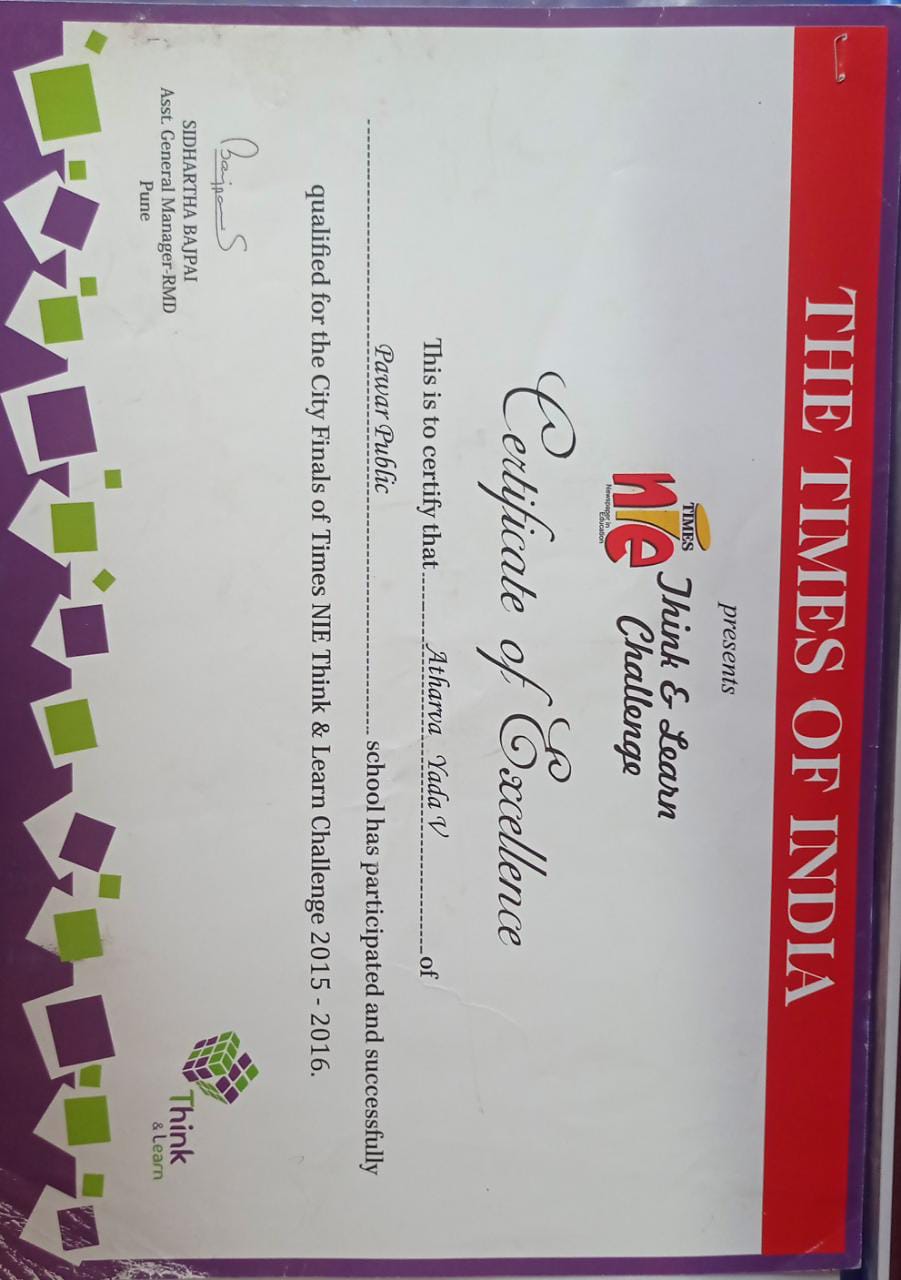 THE TIMES OF INDIA
presents
TIMES
nie
Newspaper in
Education
Think & Learn
Challenge
Certificate of Excellence
This is to certify that Atharva Yada V of
Pawar Public school has participated and successfully
qualified for the City Finals of Times NIE Think & Learn Challenge 2015 - 2016.
BajpaiS
SIDHARTHA BAJPAI
Asst. General Manager-RMD
Pune
Think
& Learn